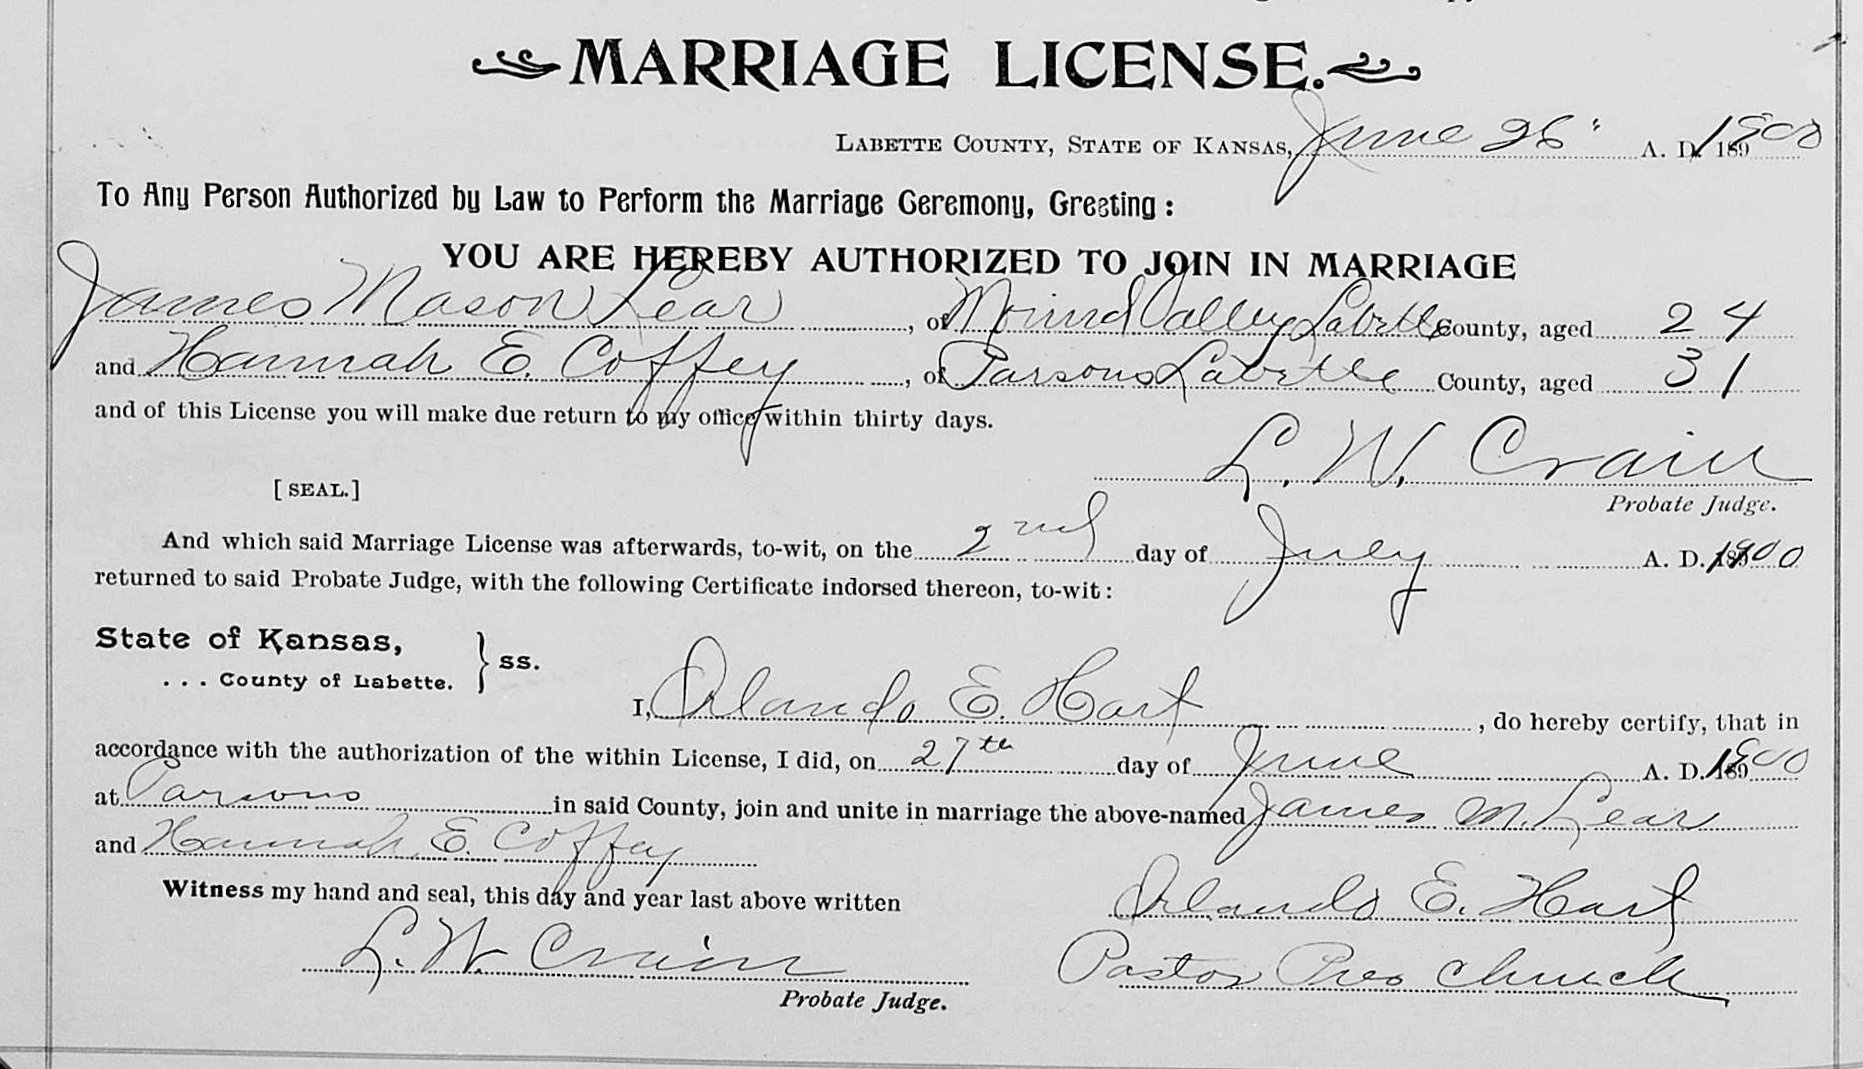 MARRIAGE LICENSE.
LABETTE COUNTY, STATE OF KANSAS, June 26" A. D. 1900
To Any Person Authorized by Law to Perform the Marriage Ceremony, Greeting:
YOU ARE HEREBY AUTHORIZED TO JOIN IN MARRIAGE
James Mason Lear, of Mound Valley Labette County, aged 24
and Hannah E. Coffey, of Parsons Labette County, aged 31
and of this License you will make due return to my office within thirty days.
L. W. Crain
[SEAL.] Probate Judge.
And which said Marriage License was afterwards, to-wit, on the 2nd day of July A. D. 1900
returned to said Probate Judge, with the following Certificate indorsed thereon, to-wit:
State of Kansas,
... County of Labette. } ss.
I, Orlando E. Hart, do hereby certify, that in
accordance with the authorization of the within License, I did, on 27th day of June A. D. 1900
at Parsons in said County, join and unite in marriage the above-named James M. Lear
and Hannah E. Coffey
Witness my hand and seal, this day and year last above written Orlando E. Hart
L. W. Crain Pastor Pres Church
Probate Judge.